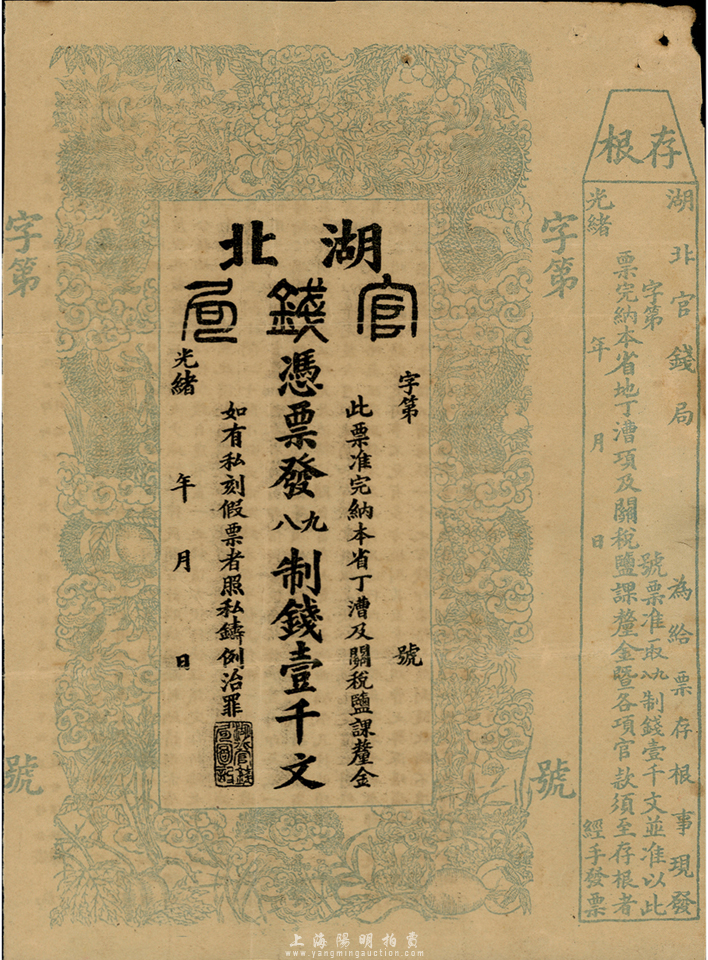 存根
湖北官錢局 為給票存根事現發
字第 號票准取九八制錢壹千文並准以此
票完納本省地丁漕項及關稅鹽課釐金暨各項官款須至存根者
光緒 年 月 日 經手發票
字第 號
湖北
官錢局
字第 號
此票准完納本省丁漕及關稅鹽課釐金
憑票發九八制錢壹千文
如有私刻假票者照私鑄例治罪
光緒 年 月 日
字第 號
上海陽明拍賣
www.yangmingauction.com